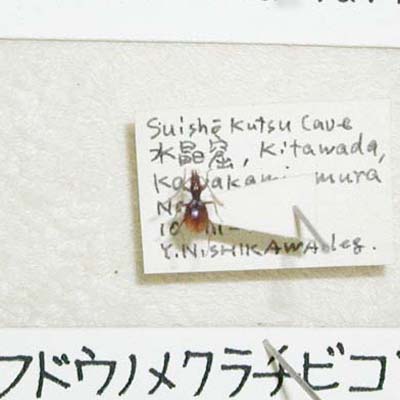 Suishō Kutsu Cave
水晶窟, Kitawada,
Kawakami mura
10
Y. NISHIKAWA leg.
フドウノメクラチビゴ